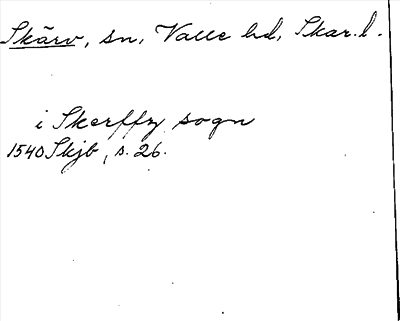 Skärv, sn, Valle hd, Skar. l.
i Skerffzy sogn
1540 Skjb, s. 26.